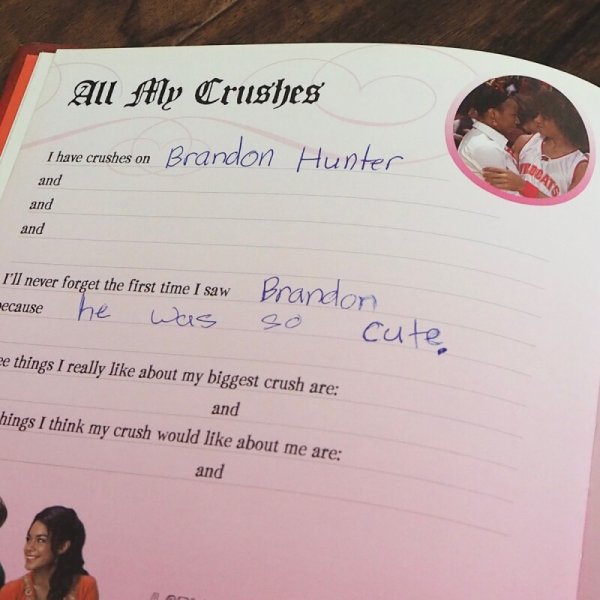 All My Crushes
I have crushes on Brandon Hunter
and
and
and
I'll never forget the first time I saw Brandon
ecause he was so cute.
ee things I really like about my biggest crush are:
and
hings I think my crush would like about me are:
and